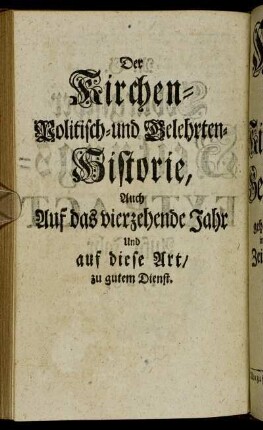 Der
Kirchen-
Politisch-und Gelehrten-
Historie,
Auch
Auf das vierzehende Jahr
Und
auf diese Art/
zu gutem Dienst.